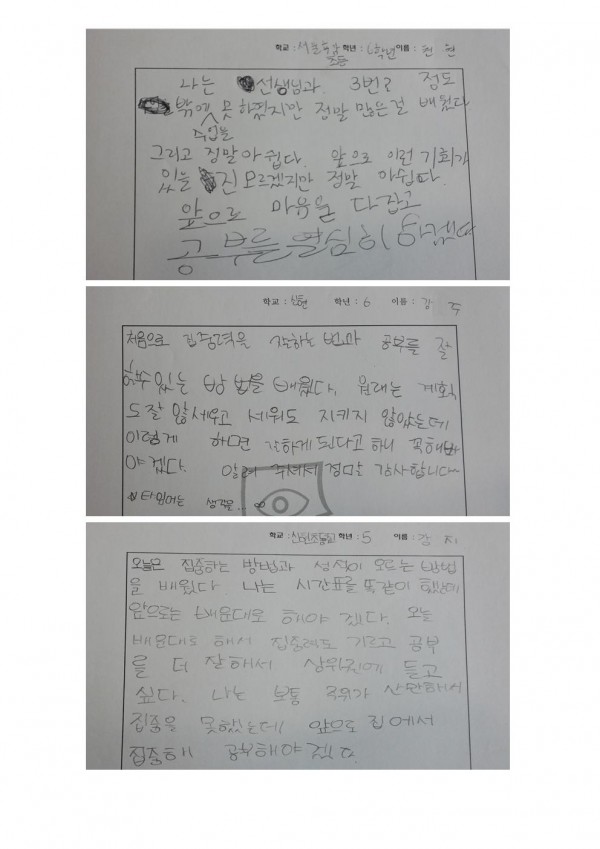 학교 : 서울수암초등 학년 : 6학년 이름 : 현
나는 선생님과 3번? 정도
밖에 수업을 못 하였지만 정말 많은걸 배웠다
그리고 정말 아쉽다. 앞으로 이런 기회가
있을 진 모르겠지만 정말 아쉽다.
앞으로 마음을 다잡고
공부를 열심히
학교 : 신현 학년 : 6 이름 : 강 주
처음으로 집중력을 잘하는 법과 공부를 잘
할수 있는 방법을 배웠다. 원래는 계획
도 잘 않세우고 세워도 지키지 않았는데
이렇게 하면 잘하게 된다고 하니 꼭해봐
야겠다. 알려 주셔서 정말 감사합니다~
타임머는 생각은...
학교 : 신현초등학교 학년 : 5 이름 : 강 지
오늘은 집중하는 방법과 성적이 오르는 방법
을 배웠다. 나는 시간표를 똑같이 했는데
앞으로는 배운대로 해야 겠다. 오늘
배운대로 해서 집중력도 기르고 공부
를 더 잘해서 상위권에 들고
싶다. 나는 보통 주위가 산만해서
집중을 못했는데 앞으로 집에서
집중해 공부해야 겠다.